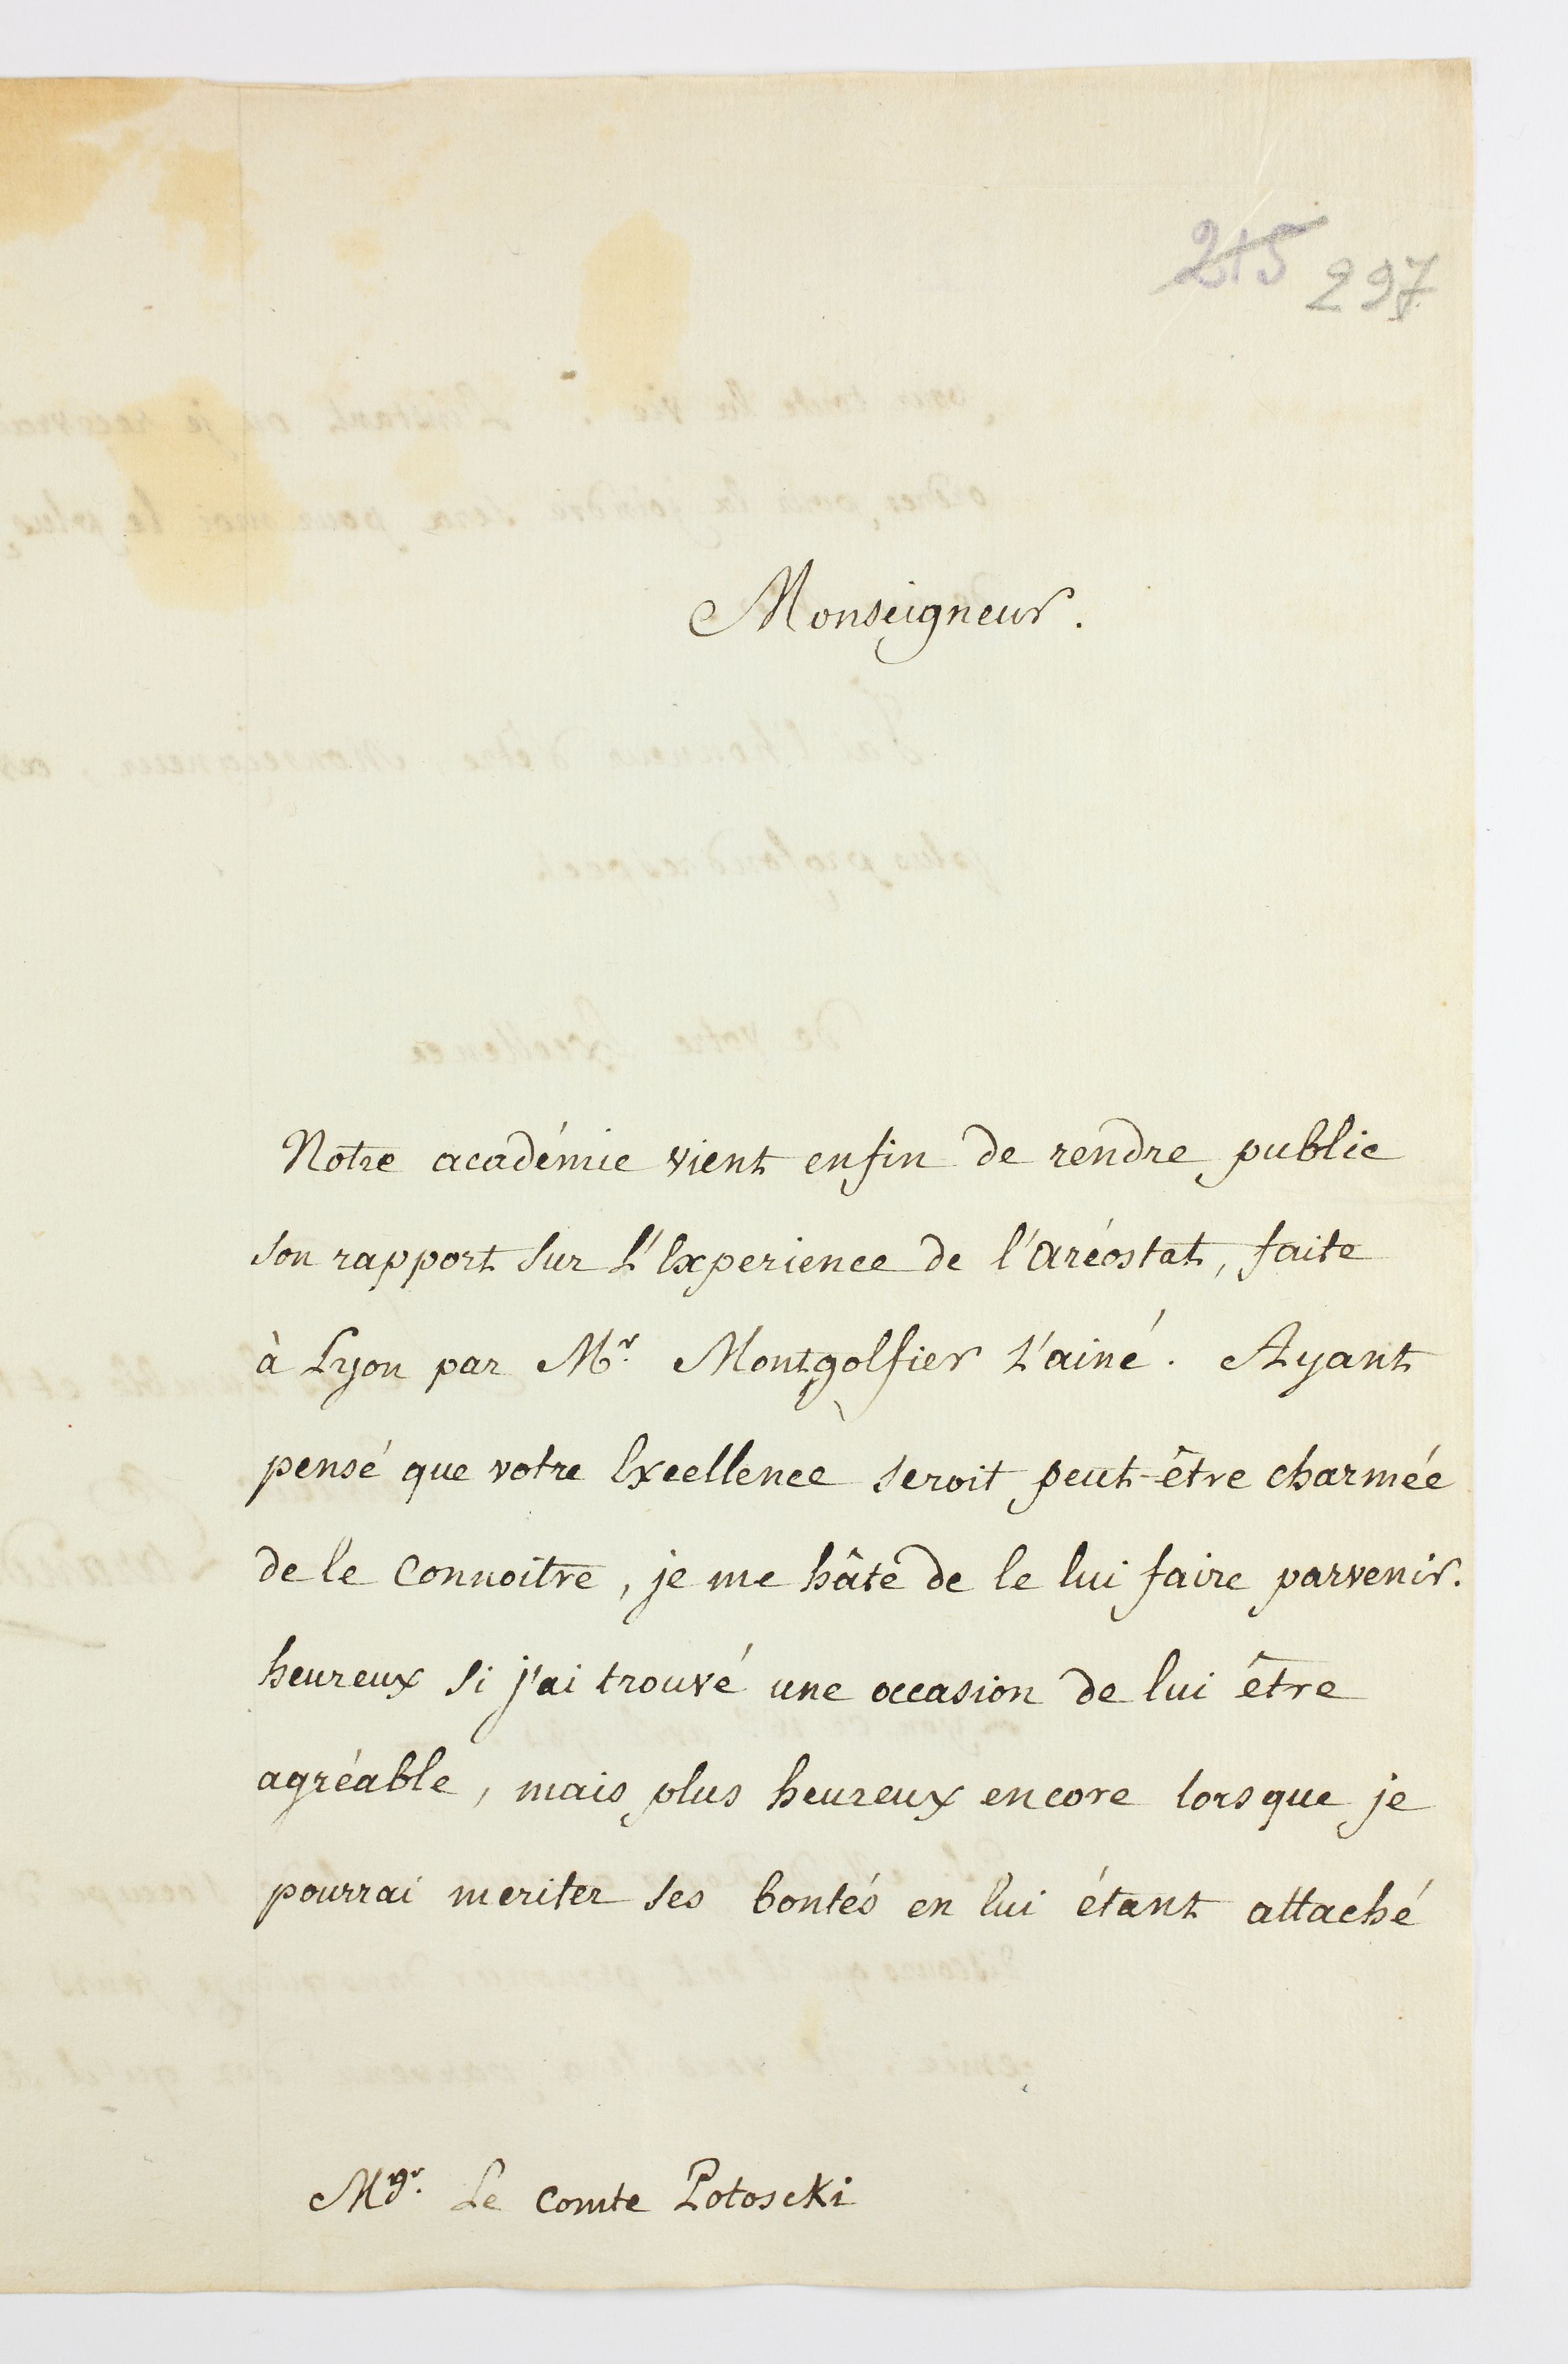 215 297
Monseigneur.
Notre académie vient enfin de rendre public
son rapport sur l'Experience de l'aréostat, faite
à Lyon par Mr. Montgolfier l'ainé. Ayant
pensé que votre Excellence seroit peut-être charmée
de le connoitre, je me hâte de le lui faire parvenir.
heureux si j'ai trouvé une occasion de lui être
agréable, mais plus heureux encore lorsque je
pourrai meriter ses bontés en lui étant attaché
Mgr. Le comte Potoscki